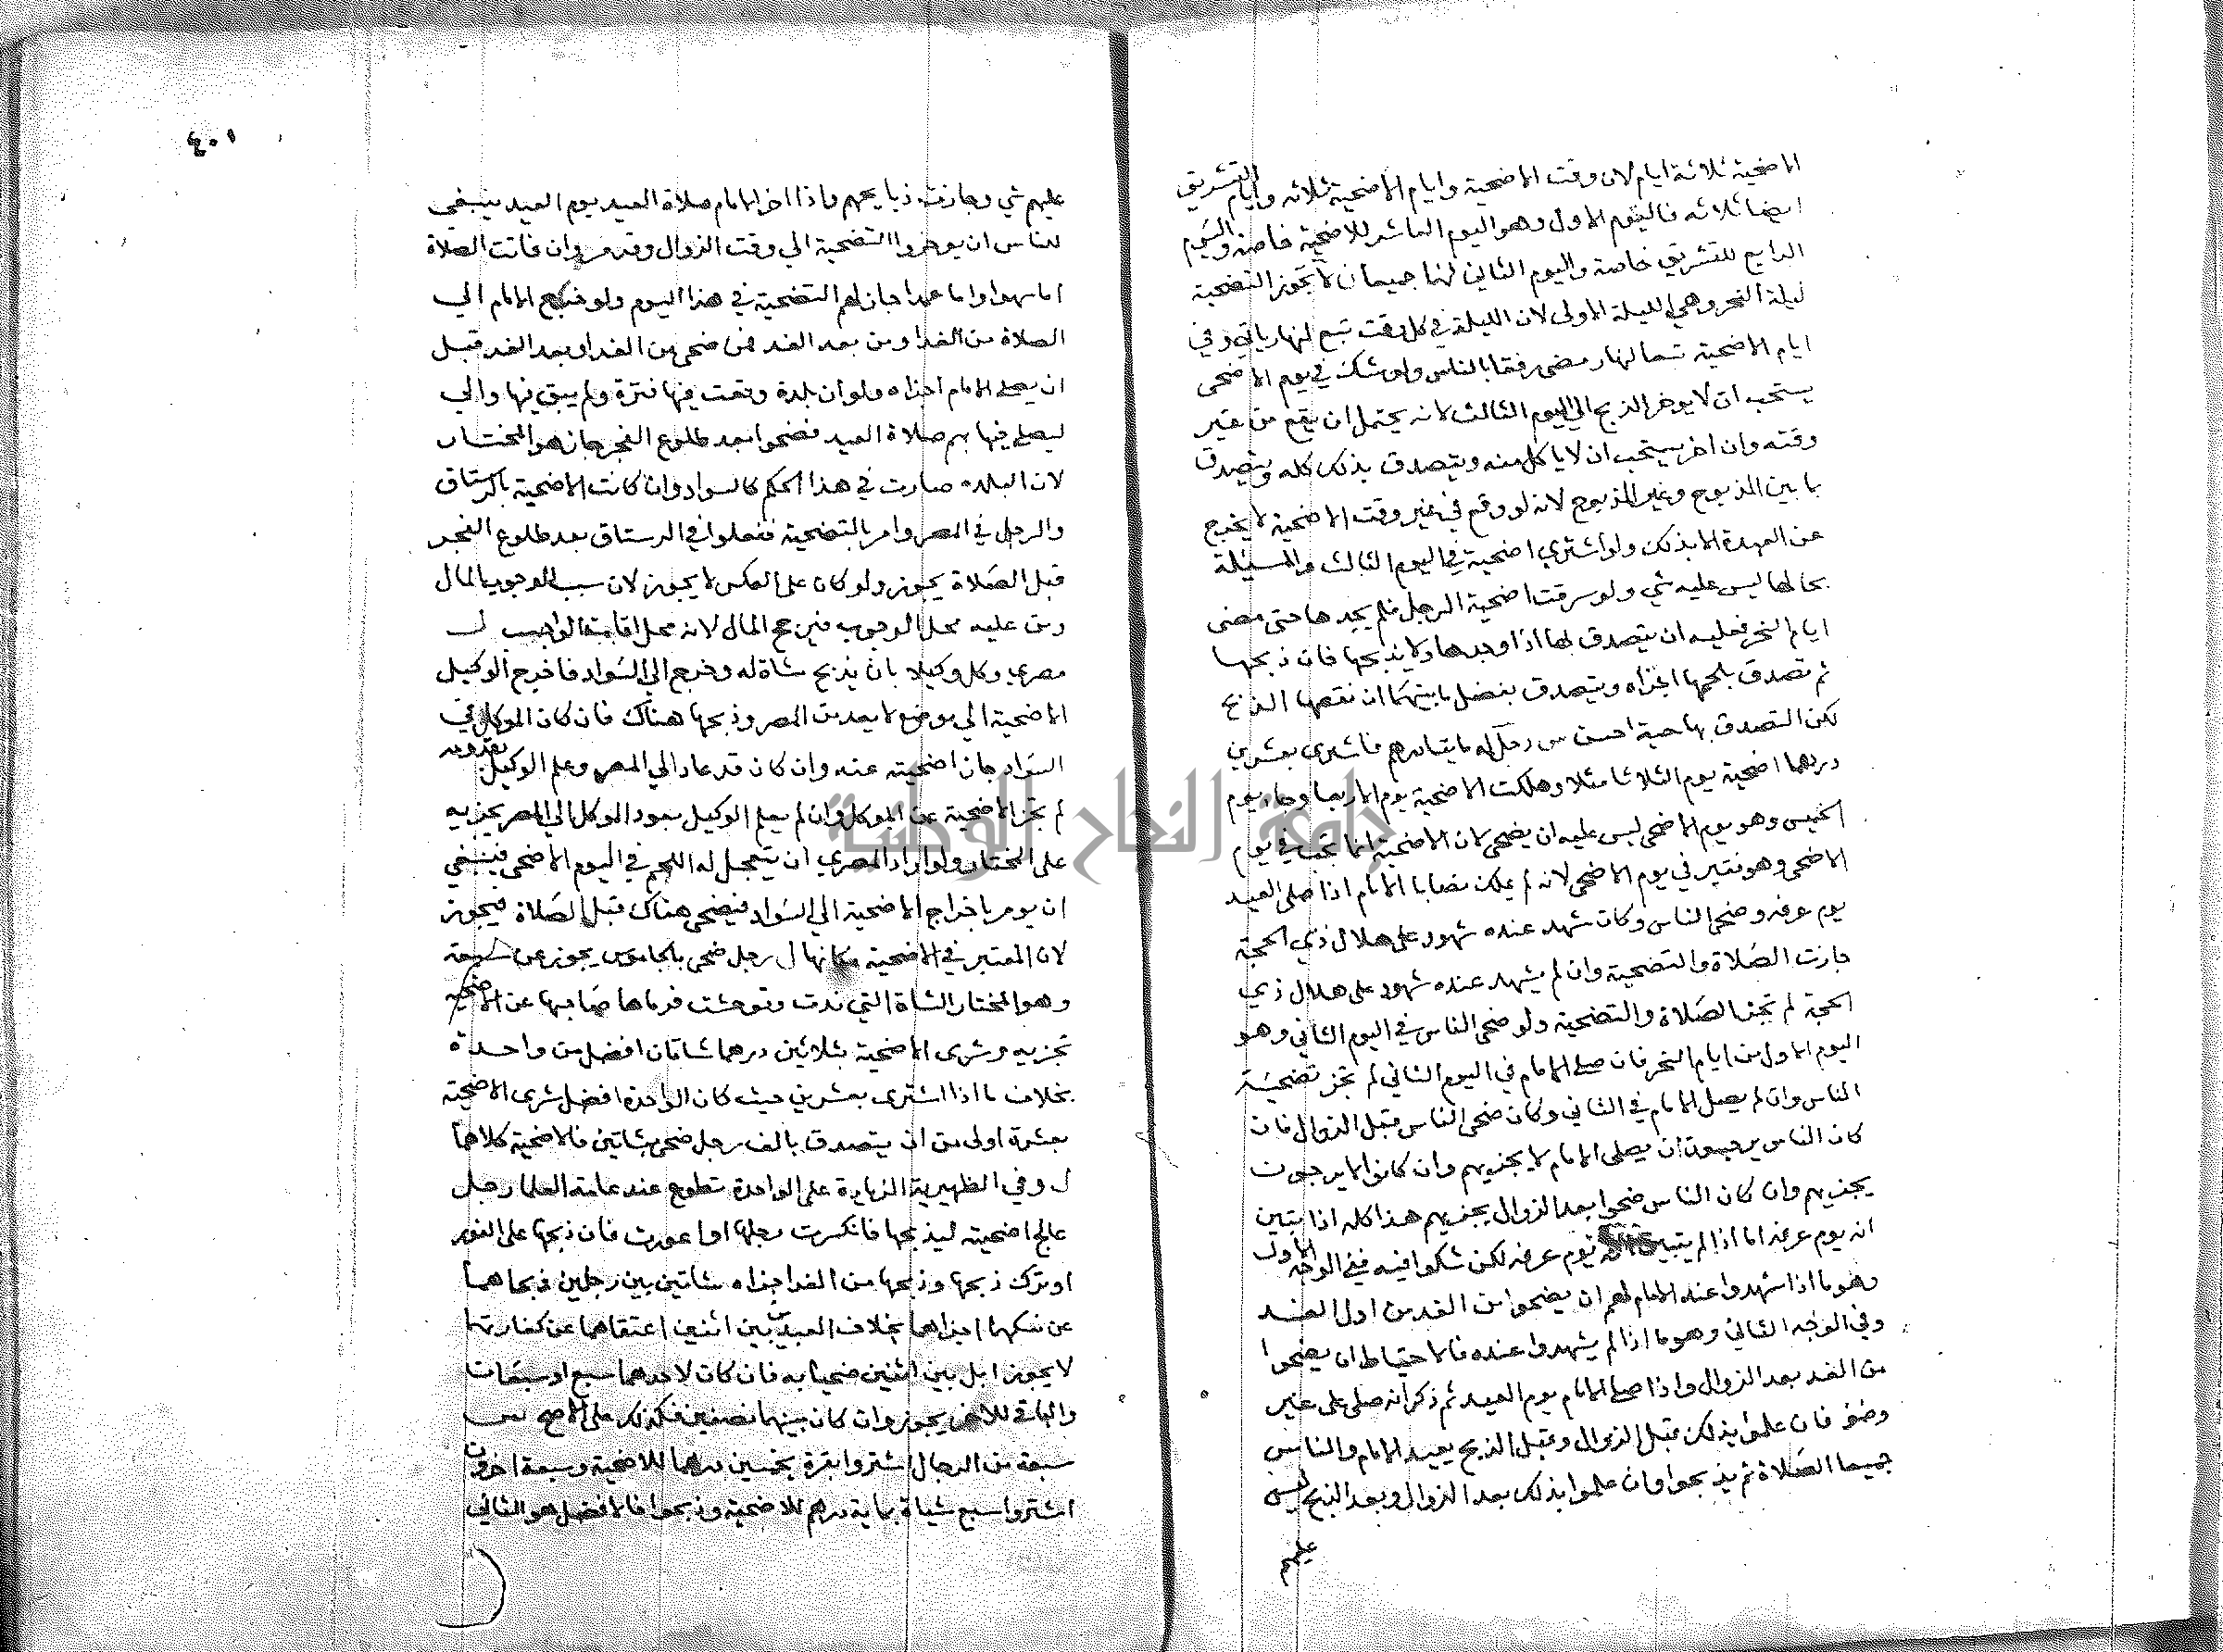 الاضحية ثلاثة ايام لان وقت الاضحية وايام الاضحية ثلاثه وايام التشريق
ايضا ثلاثه فاليوم الاول وهو اليوم العاشر للاضحية خاصة واليوم
الرابع للتشريق خاصة واليوم الثاني لهما جميعا ن لا تجوز التضحية
ليلة النحر وهي الليلة الاولى لان الليلة في كل وقت تبع لنهار ياتي وفي
ايام الاضحية تبعا لنهار مضى رفقا بالناس ولو شك في يوم الاضحى
يستحب ان لا يوخر الذبح الي اليوم الثالث لانه يحتمل ان يقع من غير
وقته وان اخر يستحب ان لا ياكل منه ويتصدق بذلك كله ويتصدق
ما بين المذبوح وغير المذبوح لانه لو وقع في غير وقت الاضحية لا يخرج
عن العهدة الا بذلك ولو اشتري اضحية في اليوم الثالث والمسيلة
بحالها ليس عليه شي ولو سرقت اضحية الرجل فلم يجدها حتى مضى
ايام النحر فعليه ان يتصدق بها اذا وجدها ولا يذبحها فان ذبحها
ثم تصدق بلحمها اجزاه ويتصدق بفضل ما بينهما ان نقصها الذبح
لكن التصدق بها حية احسن س رجل له مايتا درهم فاشترى بعشرين
درهما اضحية يوم الثلاثا مثلا وهلكت الاضحية يوم الاربعا وجاء يوم
الخميس وهو يوم الاضحى ليس عليه ان يضحى لان الاضحية انما تجب في يوم
الاضحى وهو فقير في يوم الاضحى لانه لم يملك نصابا الامام اذا صلى العيد
يوم عرفه وضحى الناس وكان شهد عنده شهود على هلال ذي الحجة
جازت الصلاة والتضحية وان لم يشهد عنده شهود على هلال ذي
الحجة لم تجز الصلاة والتضحية ولو ضحى الناس في اليوم الثاني وهو
اليوم الاول من ايام النحر فان صلى الامام في اليوم الثاني لم تجز تضحية
الناس وان لم يصل الامام في الثاني وكان ضحى الناس قبل الزوال فان
كان الناس يرجون ان يصلى الامام لا يجزيهم وان كانوا لا يرجون
يجزيهم وان كان الناس ضحوا بعد الزوال يجزيهم هذا كله اذا تبين
انه يوم عرفه اما اذا لم يتبين انه يوم عرفه لكن شكوا فيه ففي الوجه الاول
وهو ما اذا شهدوا عند الامام لهم ان يضحوا من الغد من اول الغد
وفي الوجه الثاني وهو ما اذا لم يشهدوا عنده فالاحتياط ان يضحوا
من الغد بعد الزوال واذا صلى الامام يوم العيد ثم ذكر انه صلى على غير
وضوء فان علموا بذلك قبل الزوال وقبل الذبح يعيد الامام والناس
جميعا الصلاة ثم يذبحوا وان علموا بذلك بعد الزوال وبعد الذبح ليس
عليهم
٤٠١
عليهم شي وجازت ذبايحهم واذا اخر الامام صلاة العيد يوم العيد ينبغي
للناس ان يوخروا التضحية الي وقت الزوال وقد مر وان فاتت الصلاة
اما سهوا واما عمدا جاز لهم التضحية في هذا اليوم ولو خرج الامام الي
الصلاة من الغد او من بعد الغد فمن ضحى من الغد او بعد الغد قبل
ان يصلي الامام اجزاه ولو ان بلدة وقعت فيها فترة ولم يبق فيها والي
ليصلي فيها بهم صلاة العيد فضحوا بعد طلوع الفجر جاز هو المختار
لان البلده صارت في هذا الحكم كالسواد وان كانت الاضحية بالرستاق
والرجل في المصر وامر بالتضحية ففعلوا في الرستاق بعد طلوع الفجر
قبل الصلاة يجوز ولو كان على العكس لا يجوز لان سبب الوجوب المال
ومن عليه محل الوجوب فيرجح المال لانه محل اقامة الواجب ل
مصري وكل وكيلا بان يذبح شاة له وخرج الي السواد فاخرج الوكيل
الاضحية الي موضع لا يعد من المصر وذبحها هناك فان كان الموكل في
السواد جاز اضحيته عنه وان كان قد عاد الي المصر وعلم الوكيل بقدومه
لم تجز الاضحية عن الموكل وان لم يعلم الوكيل بعود الموكل الي المصر يجزيه
على المختار ولو اراد المصري ان يتعجل له اللحم في اليوم الاضحى فينبغي
ان يومر باخراج الاضحية الي السواد فيضحى هناك قبل الصلاة فيجوز
لان المعتبر في الاضحية مكانها ل رجل ضحى بالجاموس يجوز عن سبعة
وهو المختار الشاة التي ندت وتوحشت فرماها صاحبها عن الاضحية
تجزيه وشرى الاضحية بثلاثين درهما شاتان افضل من واحدة
بخلاف ما اذا اشترى بعشرين حيث كان الواحدة افضل شرى الاضحية
بعشرة اولى من ان يتصدق بالف رجل ضحى بشاتين فالاضحية كلاهما
ل وفي الظهيرية الزيادة على الواحدة تطوع عند عامة العلما رجل
عالج اضحيته ليذبحها فانكسرت رجلها او اعورت فان ذبحها على الفور
او ترك ذبحها وذبحها من الغد اجزاه شاتين بين رجلين ذبحاهما
عن نسكهما اجزاهما بخلاف العبدين بين اثنين اعتقاهما عن كفارتهما
لا يجوز ابل بين اثنين ضحيا به فان كان لاحدهما سبع او سبعان
والباقي للاخر يجوز وان كان بينهما نصفين فكذلك على الاصح س
سبعة من الرجال اشتروا بقرة بخمسين درهما للاضحية وسبعة اخرون
اشتروا سبع شياة بماية درهم للاضحية وذبحوا فالافضل هو الثاني
جامعة النجاح الوطنية